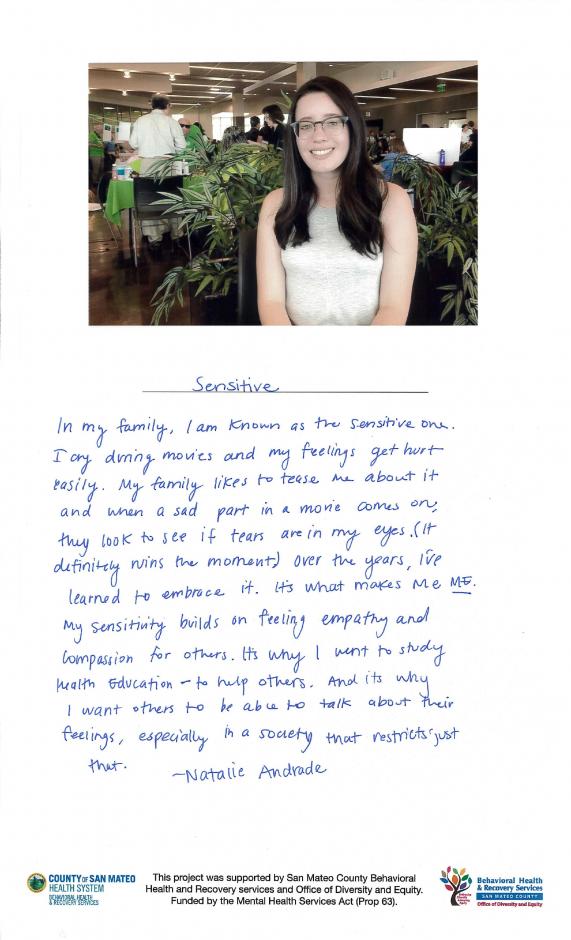 Sensitive
In my family, I am known as the sensitive one.
I cry during movies and my feelings get hurt
easily. My family likes to tease me about it
and when a sad part in a movie comes on,
they look to see if tears are in my eyes. (It
definitely ruins the moment) Over the years, I've
learned to embrace it. It's what makes me ME.
My sensitivity builds on feeling empathy and
compassion for others. Its why I went to study
Health Education - to help others. And its why
I want others to be able to talk about their
feelings, especially in a society that restricts just
that.
~Natalie Andrade
COUNTY OF SAN MATEO
HEALTH SYSTEM
BEHAVIORAL HEALTH
& RECOVERY SERVICES
This project was supported by San Mateo County Behavioral
Health and Recovery services and Office of Diversity and Equity.
Funded by the Mental Health Services Act (Prop 63).
Behavioral Health
& Recovery Services
SAN MATEO COUNTY
Office of Diversity and Equity